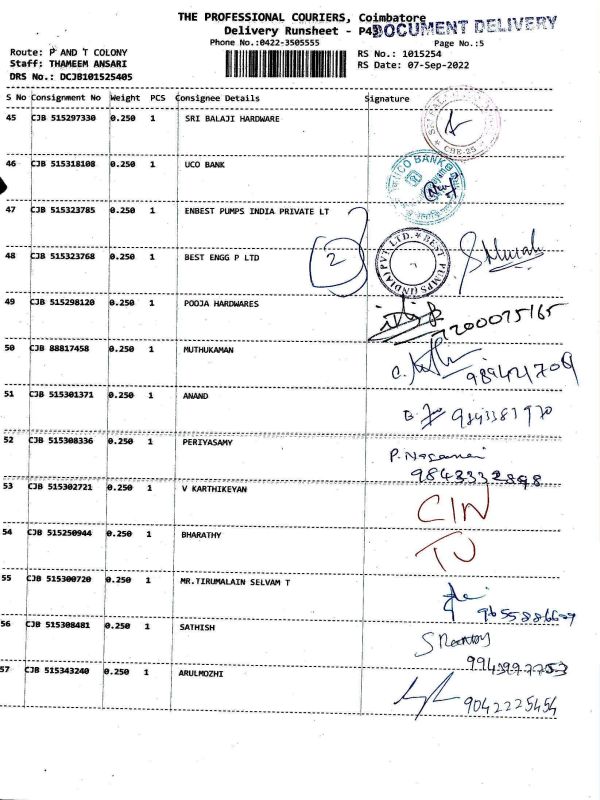 THE PROFESSIONAL COURIERS, Coimbatore
Delivery Runsheet - P4
DOCUMENT DELIVERY
Phone No.:0422-3505555
Page No.:5
Route: P AND T COLONY
RS No.: 1015254
Staff: THAMEEM ANSARI
RS Date: 07-Sep-2022
DRS No.: DCJB101525405
S No Consignment No Weight PCS Consignee Details Signature
45 CJB 515297330 0.250 1 SRI BALAJI HARDWARE
CBE-25
46 CJB 515318108 0.250 1 UCO BANK
UCO BANK
47 CJB 515323785 0.250 1 ENBEST PUMPS INDIA PRIVATE LT
48 CJB 515323768 0.250 1 BEST ENGG P LTD
2
BEST PUMPS (INDIA) PVT. LTD.
49 CJB 515298120 0.250 1 POOJA HARDWARES
7200075165
50 CJB 88817458 0.250 1 MUTHUKAMAN
51 CJB 515301371 0.250 1 ANAND
9843381970
52 CJB 515308336 0.250 1 PERIYASAMY
9843332898
53 CJB 515302721 0.250 1 V KARTHIKEYAN
CIN
54 CJB 515250944 0.250 1 BHARATHY
TU
55 CJB 515300720 0.250 1 MR.TIRUMALAIN SELVAM T
56 CJB 515308481 0.250 1 SATHISH
57 CJB 515343240 0.250 1 ARULMOZHI
9042225454